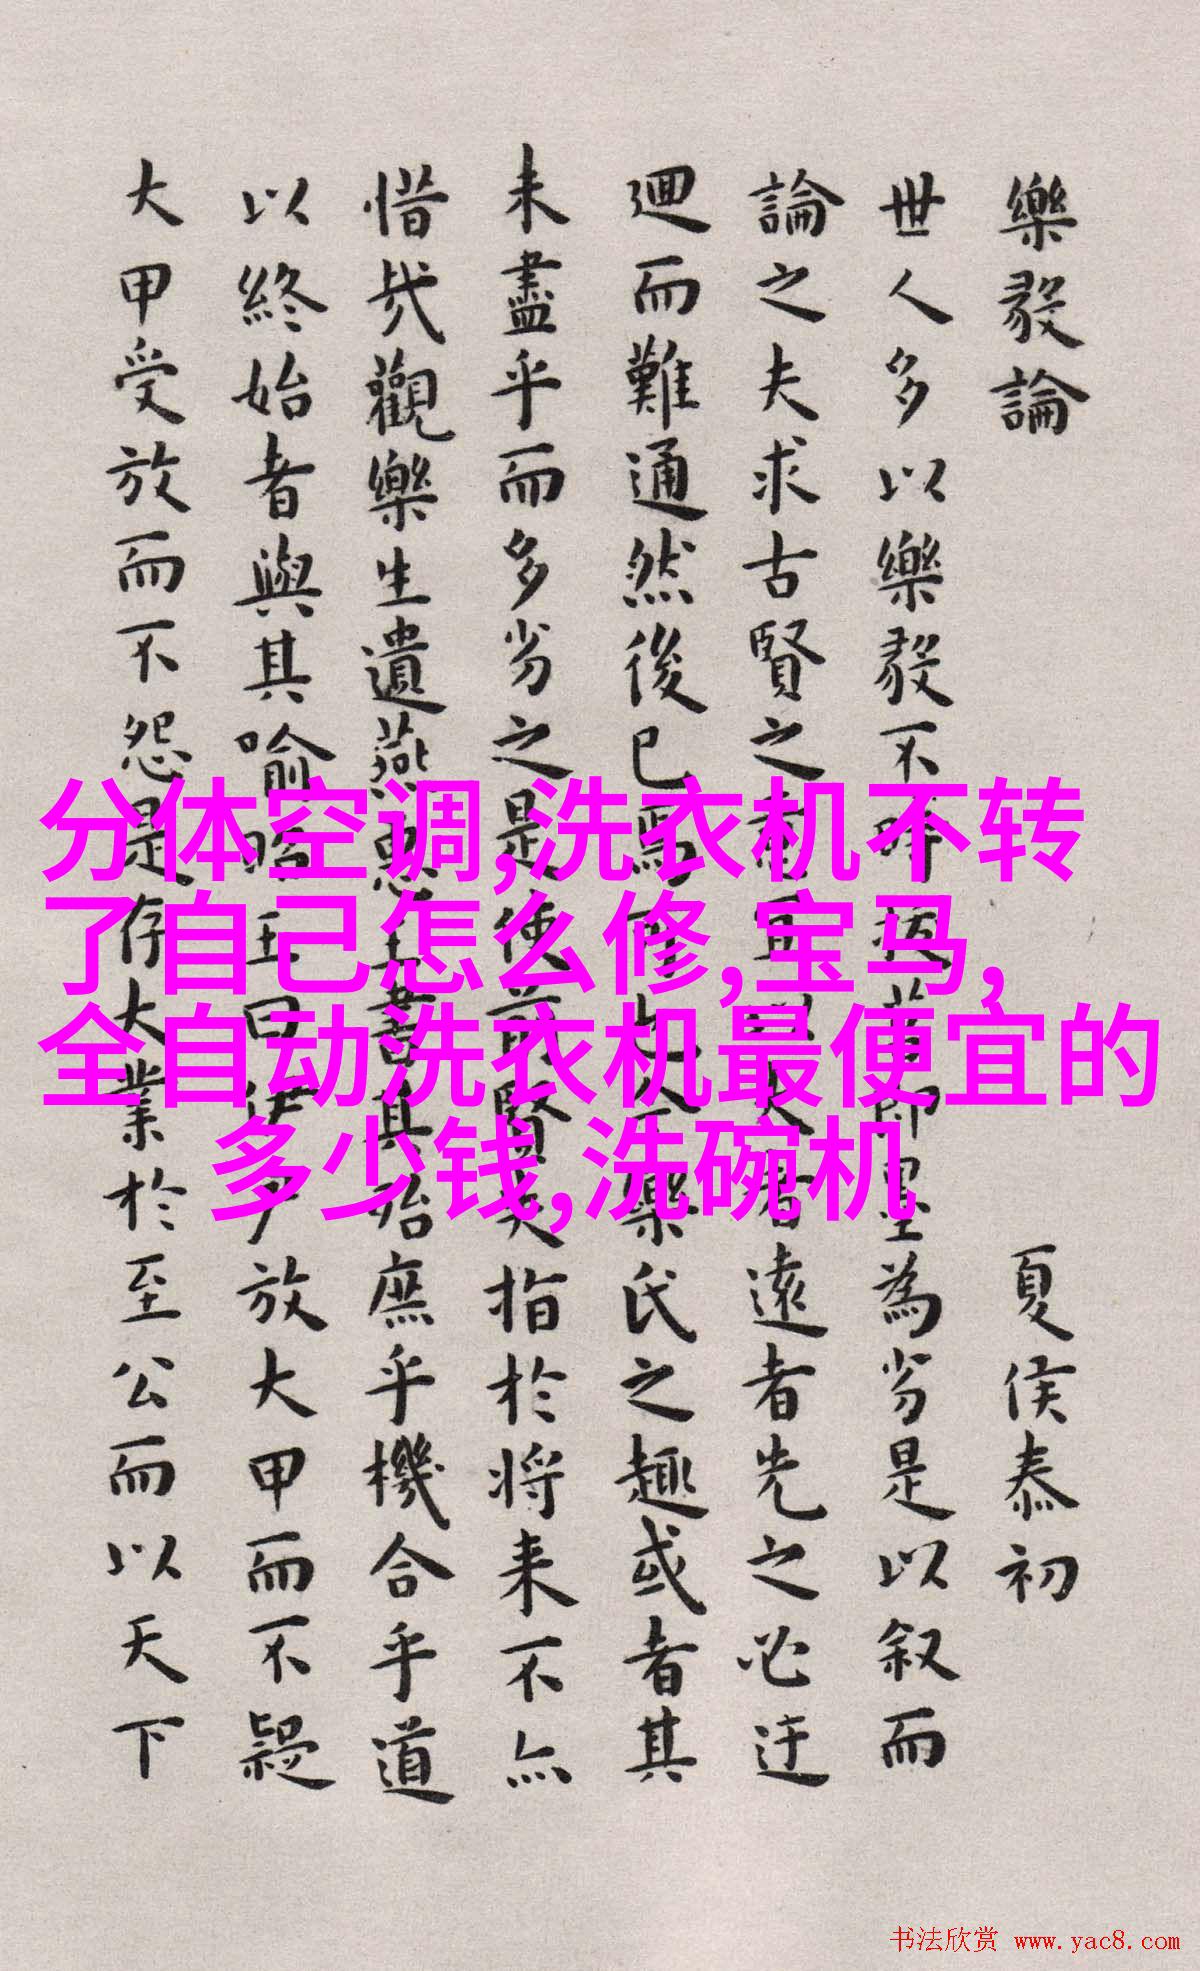 樂毅論 夏侯泰初
世人多以樂毅不 為劣是以叙而
論之夫求古賢之 遠者先之必迂
迴而難通然後已焉 樂氏之趣或者其
未盡乎而多劣之是使前賢失指於将来不亦
惜哉觀樂生遺燕惠王書其殆庶乎機合乎道
以終始者與其喻 王曰伊尹放大甲而不疑
大甲受放而不怨是存大業於至公而以天下
分体空调,洗衣机不转
了自己怎么修,宝马,
全自动洗衣机最便宜的
多少钱,洗碗机
书法欣赏 www.yac8.com